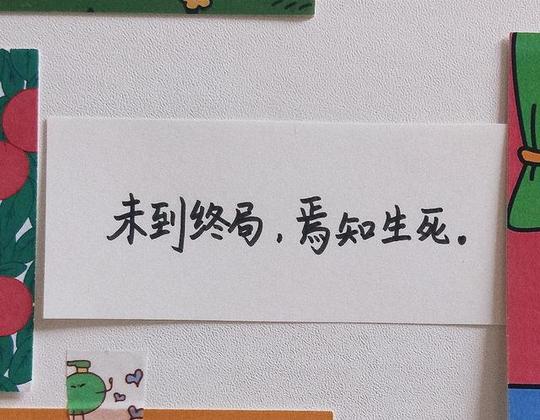 未到终局,焉知生死。